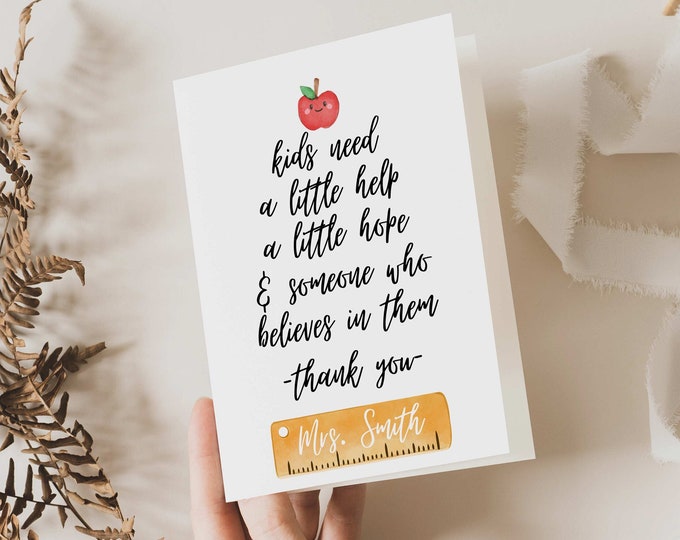 kids need
a little help
a little hope
& someone who
believes in them
-thank you-
Mrs. Smith